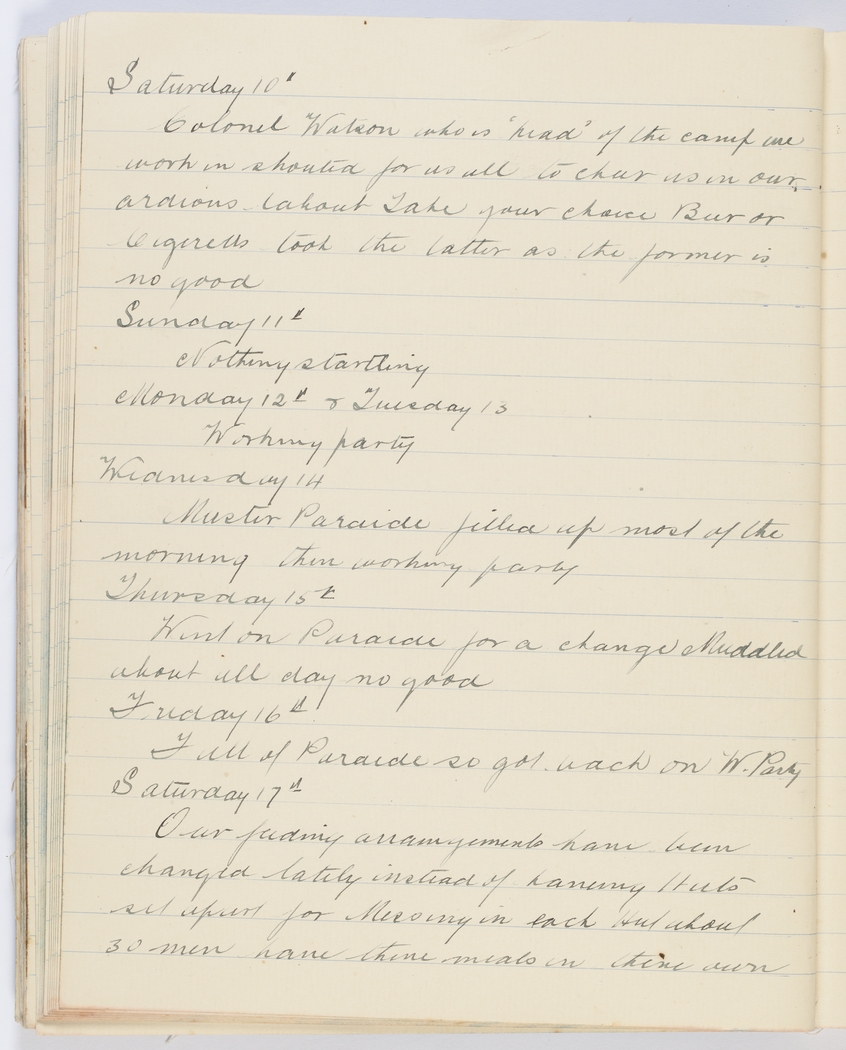 Saturday 10th
Colonel Watson who is "head" of the camp we
work in shouted for us all to chear us in our
ardious labout Take your choice Beer or
Cigeretts took the latter as the former is
no good
Sunday 11th
Nothing startling
Monday 12th & Tuesday 13
Working party
Wednesday 14
Muster Paraide filled up most of the
morning then working party
Thursday 15th
Went on Paraide for a change Muddled
about all day no good
Friday 16th
Full of Paraide so got back on W. Party
Saturday 17th
Our feeding arrangements have been
changed lately instead of haneing Huts
set apart for Messing in each Hut about
30 men have there meals in there own